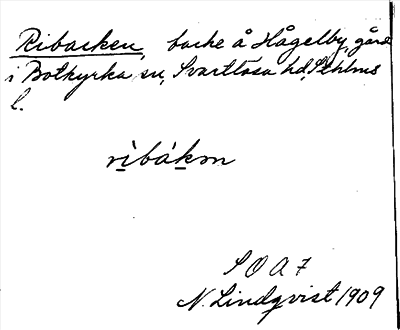 Ribacken, backe å Hågelby, gård
i Botkyrka sn, Svartlösa hd, Sthlms
l.
rìbákən
S O A 7
N. Lindqvist 1909